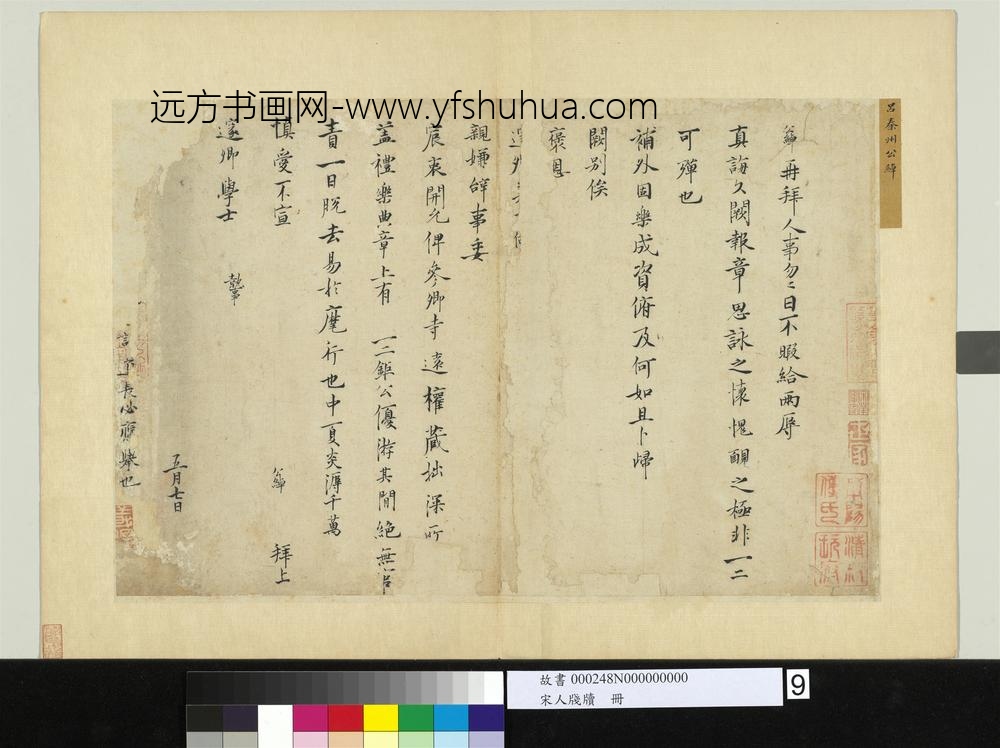 远方书画网-www.yfshuhua.com
呂秦州公弼
再拜人事勿〻日不暇給兩辱
真誨久闕報章思詠之懷愧靦之極非一二
可殫也
補外固樂成資俯及何如且卜歸
闕別俟
褒恩
親嫌辭事委
宸衷開允俾參卿寺遠權藏拙深所
蓋禮樂典章上有一二鉅公優游其間絕無官
責一日脫去易於麾行也中夏炎溽千萬
慎愛不宣
拜上
邃卿學士
五月七日
長必應舉也
故書 000248N000000000
宋人牋牘 冊
9